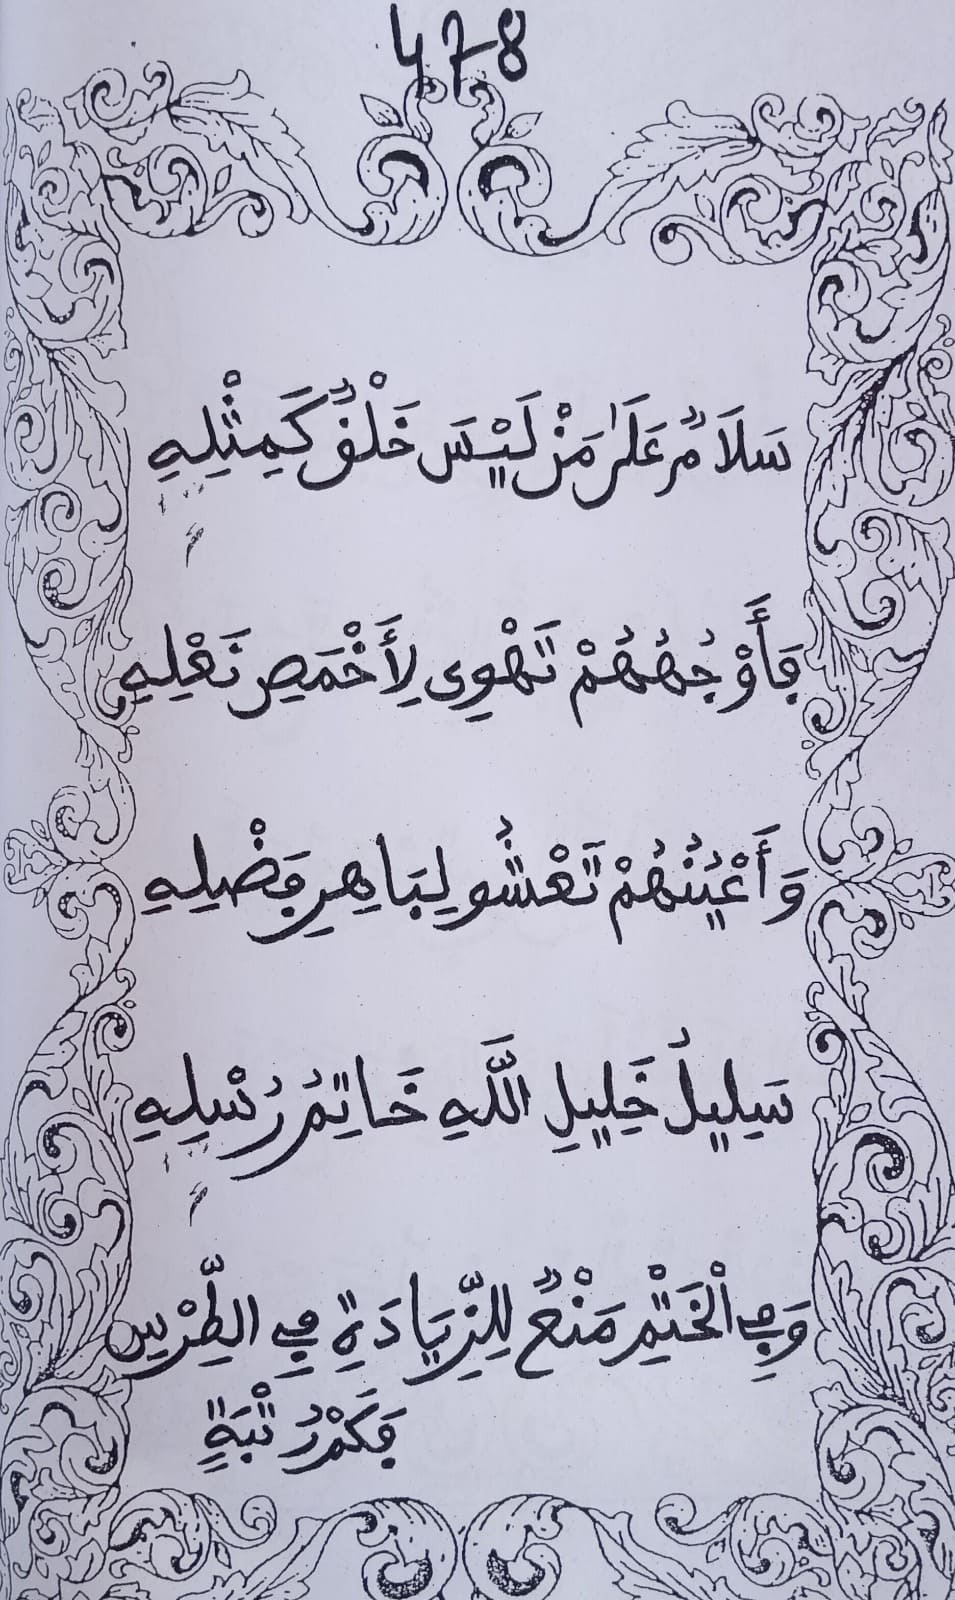 478
سَلَامٌ عَلَىٰ مَنْ لَيْسَ خَلْقٌ كَمِثْلِهِ
فَأَوْجُهُهُمْ تَهْوِى لِأَخْمَصِ نَعْلِهِ
وَأَعْيُنُهُمْ تَعْشُو لِبَاهِرِ فَضْلِهِ
سَلِيلُ خَلِيلِ اللَّهِ خَاتِمُ رُسْلِهِ
وَفِي الْخَتْمِ مَنْعٌ لِلزِّيَادَةِ فِي الطِّرْسِ
فَكَمْ رُتْبَةٍ